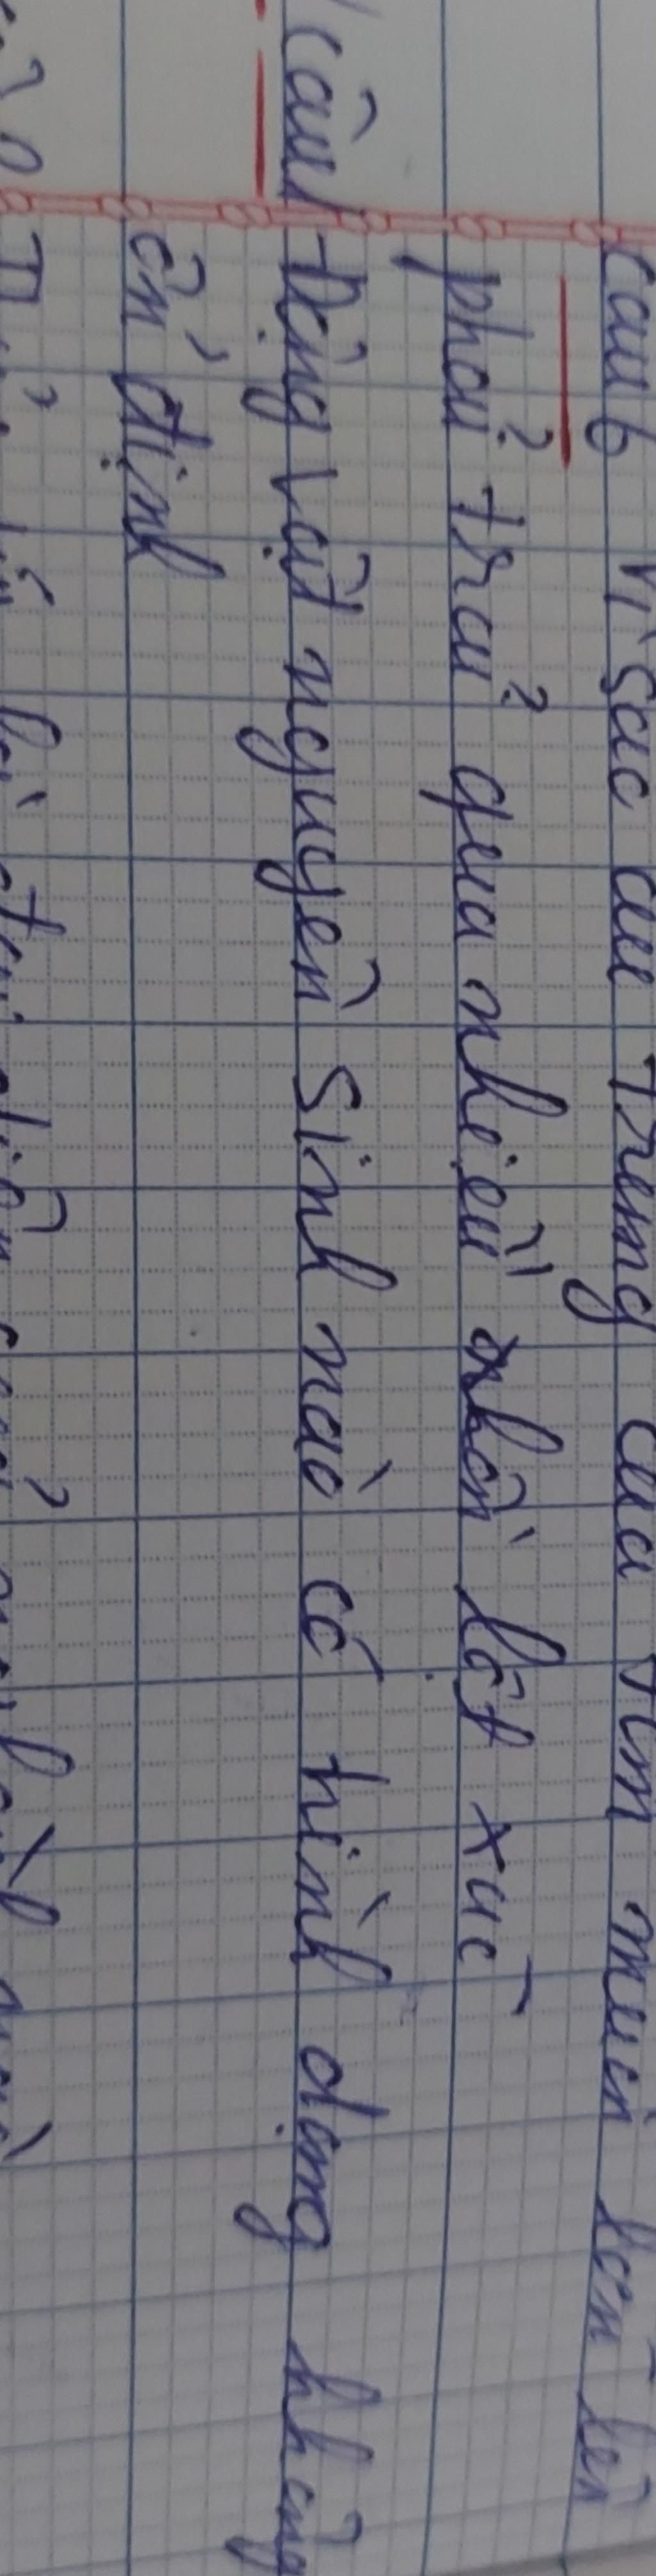 câu 6 vì sao ấu trùng của tôm muốn lớn lên
phải trải qua nhiều nhần lột xác
câu Động vật nguyên sinh nào có hình dạng không
ổn định